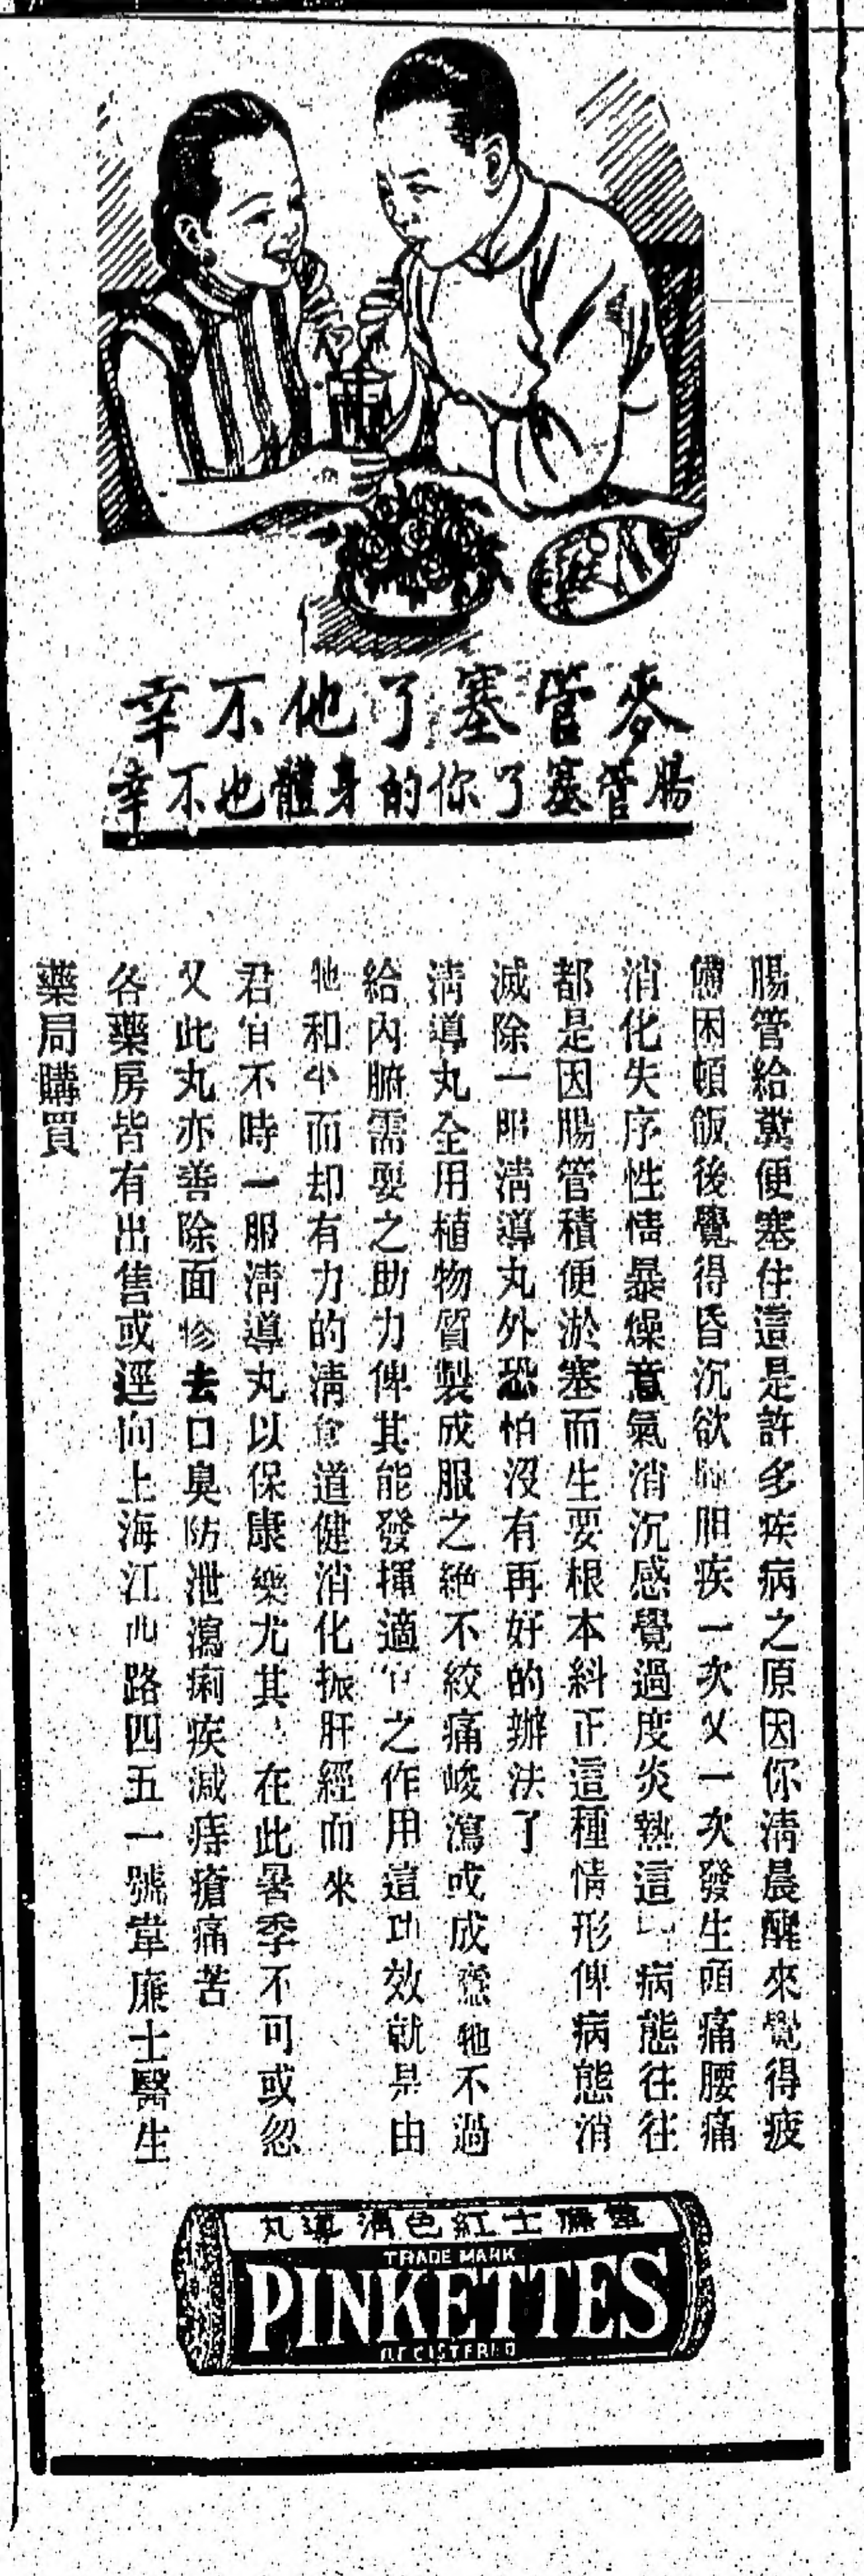 麥管塞了他不幸
腸管塞了你的身體也不幸
腸管給糞便塞住這是許多疾病之原因你清晨醒來覺得疲
憊困頓飯後覺得昏沉欲 胆疾一次又一次發生頭痛腰痛
消化失序性情暴燥意氣消沉感覺過度炎熱這 病態往往
都是因腸管積便淤塞而生要根本糾正這種情形俾病態消
滅除一服清導丸外恐怕沒有再好的辦法了
清導丸全用植物質製成服之絶不絞痛峻瀉或成癮牠不過
給內臟需要之助力俾其能發揮適宜之作用這功效就是由
牠和平而却有力的清食道健消化振肝經而來
君宜不時一服清導丸以保康樂尤其 在此暑季不可或忽
又此丸亦善除面 去口臭防泄瀉痢疾減痔瘡痛苦
各藥房皆有出售或逕向上海江西路四五一號韋廉士醫生
藥局購買
韋廉士紅色清導丸
TRADE MARK
PINKETTES
REGISTERED